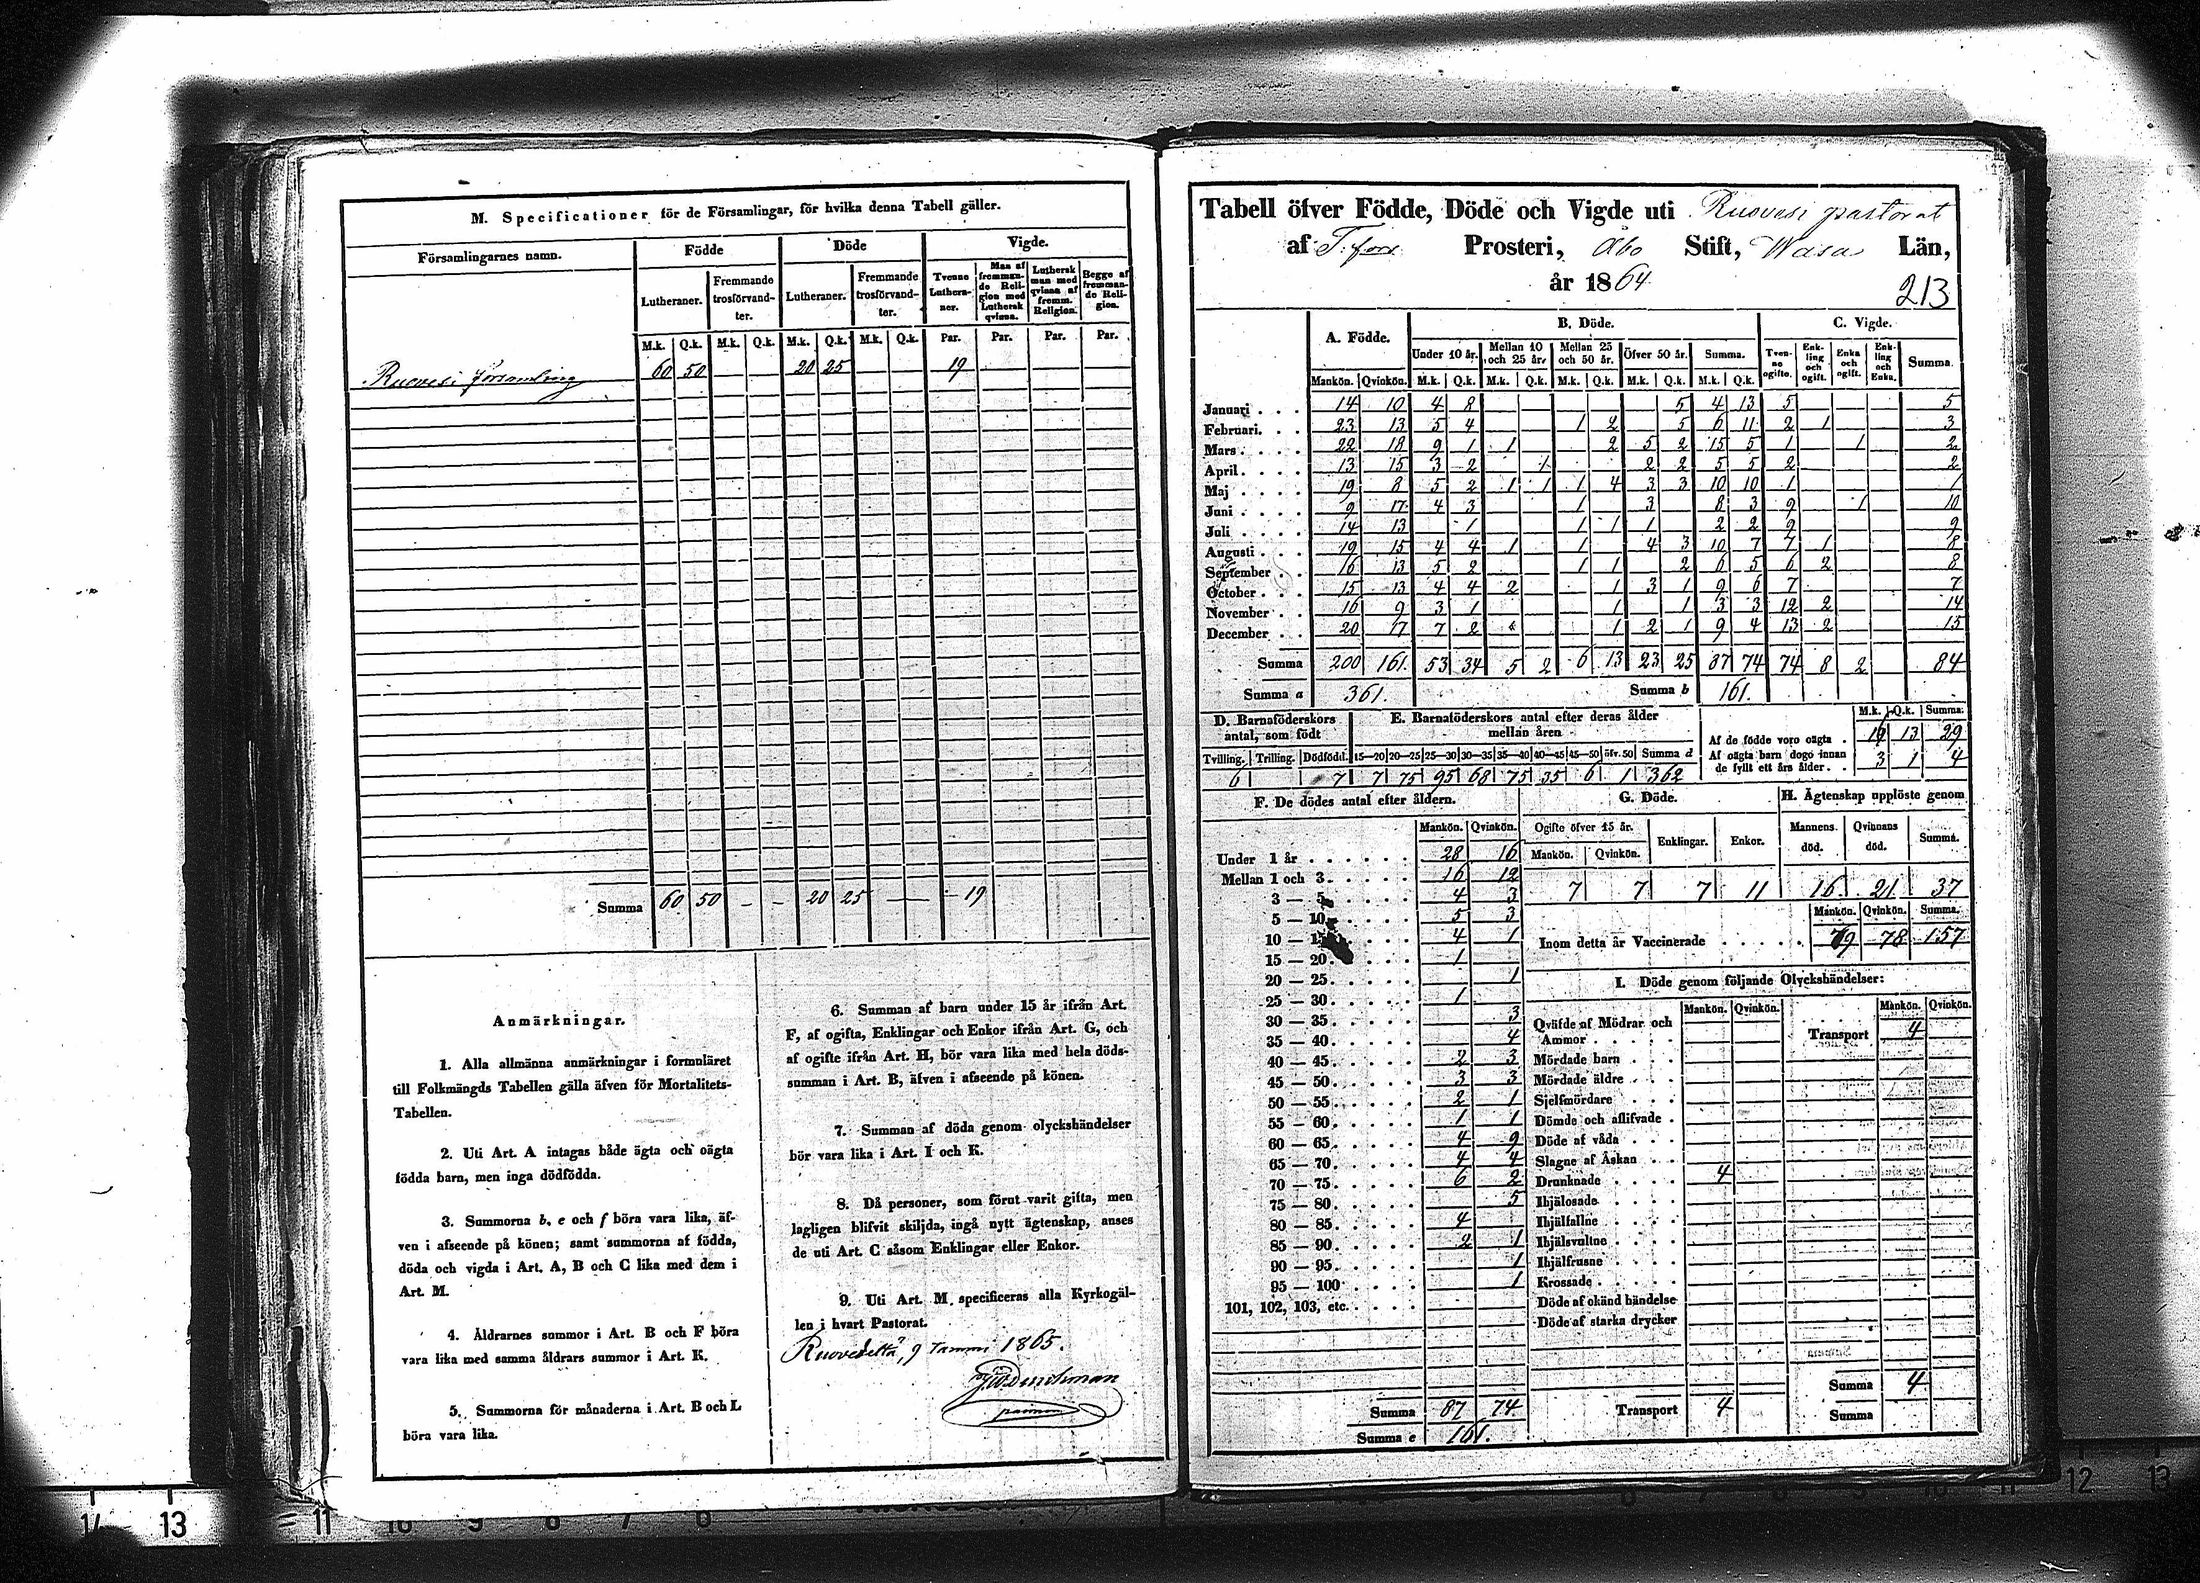 M. Specificationer för de Församlingar, för hvilka denna Tabell gäller.
Församlingarnes namn. Födde Döde Vigde.
Lutheraner. Fremmande trosförvandter. Lutheraner. Fremmande trosförvandter. Tvenne Lutheraner. Man af fremmande Religion med Luthersk qvinna. Luthersk man med qvinna af fremm. Religion. Begge af fremmande Religion.
M.k. Q.k. M.k. Q.k. M.k. Q.k. M.k. Q.k. Par. Par. Par. Par.
Ruovesi församling 60 50 20 25 19
Summa 60 50 - - 20 25 — - 19
Anmärkningar.
1. Alla allmänna anmärkningar i formuläret
till Folkmängds Tabellen gälla äfven för Mortalitets-
Tabellen.
2. Uti Art. A intagas både ägta och oägta
födda barn, men inga dödfödda.
3. Summorna b, e och f böra vara lika, äf-
ven i afseende på könen; samt summorna af födda,
döda och vigda i Art. A, B och C lika med dem i
Art. M.
4. Åldrarnes summor i Art. B och F böra
vara lika med samma åldrars summor i Art. K.
5. Summorna för månaderna i Art. B och L
böra vara lika.
6. Summan af barn under 15 år ifrån Art.
F, af ogifta, Enklingar och Enkor ifrån Art. G, och
af ogifte ifrån Art. H, bör vara lika med hela döds-
summan i Art. B, äfven i afseende på könen.
7. Summan af döda genom olyckshändelser
bör vara lika i Art. I och K.
8. Då personer, som förut varit gifta, men
lagligen blifvit skiljda, ingå nytt ägtenskap, anses
de uti Art. C såsom Enklingar eller Enkor.
9. Uti Art. M. specificeras alla Kyrkogäl-
len i hvart Pastorat.
Ruovedeltä, 9 Tammi 1865.
Tabell öfver Födde, Döde och Vigde uti Ruovesi pastorat
af T:fors Prosteri, Åbo Stift, Wasa Län,
år 1864
213
A. Födde. B. Döde. C. Vigde.
Under 10 år. Mellan 10 och 25 år. Mellan 25 och 50 år. Öfver 50 år. Summa. Tvenne ogifte. Enkling och ogift. Enka och ogift. Enkling och Enka. Summa.
Mankön. Qvinkön. M.k. Q.k. M.k. Q.k. M.k. Q.k. M.k. Q.k. M.k. Q.k.
Januari 14 10 4 8 5 4 13 5 5
Februari 23 13 5 4 1 2 5 6 11 2 1 3
Mars 22 18 9 1 1 2 5 2 15 5 1 1 2
April 13 15 3 2 1 2 2 5 5 2 2
Maj 19 8 5 2 1 1 1 4 3 3 10 10 1 1
Juni 9 17 4 3 1 3 8 3 9 1 10
Juli 14 13 1 1 1 1 2 2 9 9
Augusti 19 15 4 4 1 1 4 3 10 7 7 1 8
September 16 13 5 2 1 1 2 6 5 6 2 8
October 15 13 4 4 2 1 3 1 9 6 7 7
November 16 9 3 1 1 1 3 3 12 2 14
December 20 17 7 2 1 2 1 9 4 13 2 15
Summa 200 161 53 34 5 2 6 13 23 25 87 74 74 8 2 84
Summa a 361. Summa b 161.
D. Barnaföderskors antal, som födt
E. Barnaföderskors antal efter deras ålder mellan åren
M.k. Q.k. Summa.
Af de födde voro oägta 16 13 29
Af oägta barn dogo innan de fyllt ett års ålder 3 1 4
Tvilling. Trilling. Dödfödd. 15—20 20—25 25—30 30—35 35—40 40—45 45—50 öfv. 50 Summa d
6 7 7 75 95 68 75 35 6 1 362
F. De dödes antal efter åldern.
Mankön. Qvinkön.
Under 1 år 28 16
Mellan 1 och 3 16 12
3 — 5 4 3
5 — 10 5 3
10 — 4 1
15 — 20 1
20 — 25 1
25 — 30 1
30 — 35 3
35 — 40 4
40 — 45 2 3
45 — 50 3 3
50 — 55 2 1
55 — 60 1 1
60 — 65 4 9
65 — 70 4 4
70 — 75 6 2
75 — 80 5
80 — 85 4
85 — 90 2 1
90 — 95 1
95 — 100 1
101, 102, 103, etc.
Summa 87 74
Summa e 161.
G. Döde.
Ogifte öfver 15 år. Enklingar. Enkor.
Mankön. Qvinkön.
7 7 7 11
H. Ägtenskap upplöste genom
Mannens död. Qvinnans död. Summa.
16 21 37
Mankön. Qvinkön. Summa.
Inom detta år Vaccinerade 79 78 157
I. Döde genom följande Olyckshändelser:
Mankön. Qvinkön. Mankön. Qvinkön.
Qväfde af Mödrar och Ammor Transport 4
Mördade barn
Mördade äldre
Sjelfmördare
Dömde och aflifvade
Döde af våda
Slagne af Åskan
Drunknade 4
Ihjälosade
Ihjälfallne
Ihjälsvultne
Ihjälfrusne
Krossade
Döde af okänd händelse
Döde af starka drycker
Summa 4
Transport 4 Summa
14 13 11 10 9 8 7 6
6 7 8 9 10 11 12 13